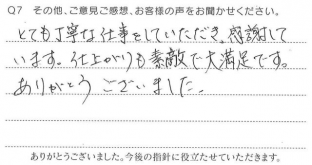 Q7 その他、ご意見ご感想、お客様の声をお聞かせください。
とても丁寧な仕事をしていただき、感謝して
います。仕上がりも素敵で大満足です。
ありがとうございました。
ありがとうございました。今後の指針に役立たせていただきます。